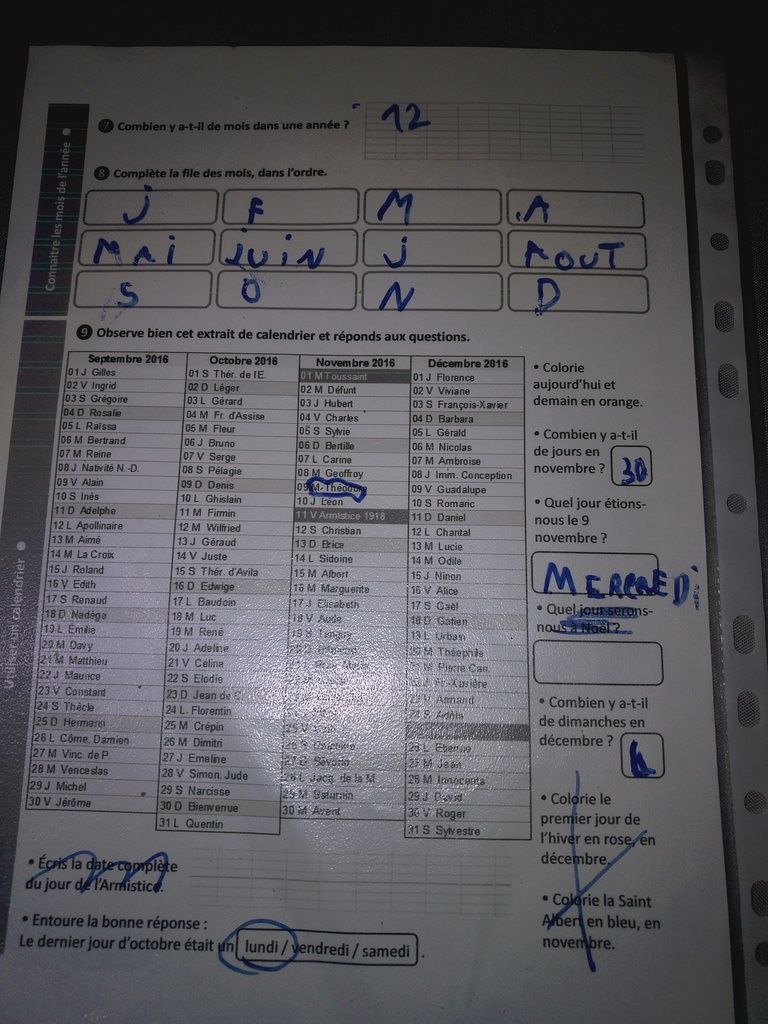 Connaître les mois de l'année
7 Combien y a-t-il de mois dans une année ?
12
8 Complète la file des mois, dans l'ordre.
J F M A
MAI JUIN J AOUT
S O N D
Utiliser un calendrier
9 Observe bien cet extrait de calendrier et réponds aux questions.
Septembre 2016
01 J Gilles
02 V Ingrid
03 S Grégoire
04 D Rosalie
05 L Raïssa
06 M Bertrand
07 M Reine
08 J Nativité N.-D.
09 V Alain
10 S Inès
11 D Adelphe
12 L Apollinaire
13 M Aimé
14 M La Croix
15 J Roland
16 V Edith
17 S Renaud
18 D Nadège
19 L Emilie
20 M Davy
21 M Matthieu
22 J Maurice
23 V Constant
24 S Thècle
25 D Hermann
26 L Côme. Damien
27 M Vinc. de P.
28 M Venceslas
29 J Michel
30 V Jérôme
Octobre 2016
01 S Thér. de l'E.
02 D Léger
03 L Gérard
04 M Fr. d'Assise
05 M Fleur
06 J Bruno
07 V Serge
08 S Pélagie
09 D Denis
10 L Ghislain
11 M Firmin
12 M Wilfried
13 J Géraud
14 V Juste
15 S Thér. d'Avila
16 D Edwige
17 L Baudoin
18 M Luc
19 M René
20 J Adeline
21 V Céline
22 S Elodie
23 D Jean de C.
24 L Florentin
25 M Crépin
26 M Dimitri
27 J Emeline
28 V Simon. Jude
29 S Narcisse
30 D Bienvenue
31 L Quentin
Novembre 2016
01 M Toussaint
02 M Défunt
03 J Hubert
04 V Charles
05 S Sylvie
06 D Bertille
07 L Carine
08 M Geoffroy
09 M Théodore
10 J Léon
11 V Armistice 1918
12 S Christian
13 D Brice
14 L Sidoine
15 M Albert
16 M Marguerite
17 J Elisabeth
18 V Aude
19 S Tanguy
25 V
27 D Séverin
28 L Jacq. de la M.
29 M Saturnin
30 M
Décembre 2016
01 J Florence
02 V Viviane
03 S François-Xavier
04 D Barbara
05 L Gérald
06 M Nicolas
07 M Ambroise
08 J Imm. Conception
09 V Guadalupe
10 S Romaric
11 D Daniel
12 L Chantal
13 M Lucie
14 M Odile
15 J Ninon
16 V Alice
17 S Gaël
18 D Gatien
19 L Urbain
20 M Théophile
21 M Pierre Can.
22 J Fr.-Xavière
23 V Armand
24 S Adèle
26 L Etienne
27 M Jean
28 M Innocents
29 J David
30 V Roger
31 S Sylvestre
• Colorie
aujourd'hui et
demain en orange.
• Combien y a-t-il
de jours en
novembre ? 30
• Quel jour étions-
nous le 9
novembre ?
MERCREDI
• Quel jour serons-
nous à Noël ?
• Combien y a-t-il
de dimanches en
décembre ?
• Colorie le
premier jour de
l'hiver en rose, en
décembre.
• Colorie la Saint
Albert en bleu, en
novembre.
• Écris la date complète
du jour de l'Armistice.
• Entoure la bonne réponse :
Le dernier jour d'octobre était un lundi / vendredi / samedi .